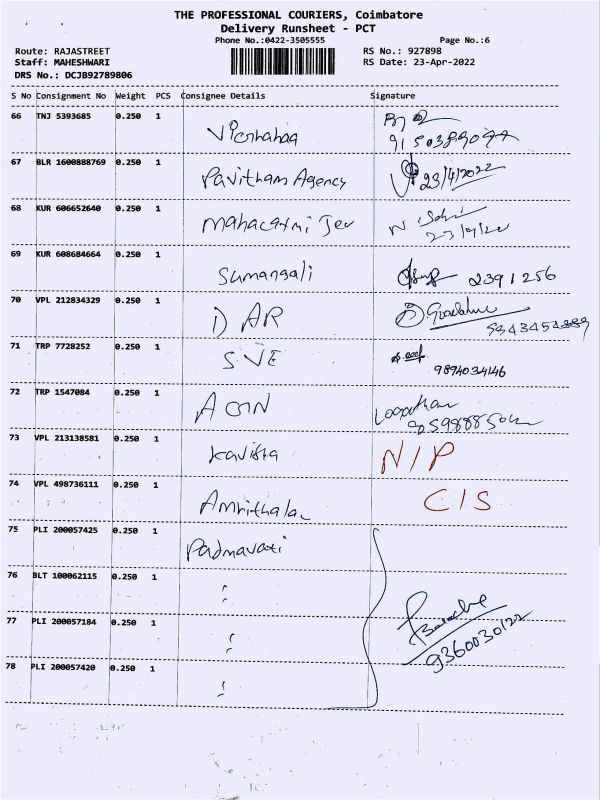 THE PROFESSIONAL COURIERS, Coimbatore
Delivery Runsheet - PCT
Phone No.:0422-3505555 Page No.:6
Route: RAJASTREET RS No.: 927898
Staff: MAHESHWARI RS Date: 23-Apr-2022
DRS No.: DCJB92789806
S No Consignment No Weight PCS Consignee Details Signature
66 TNJ 5393685 0.250 1
67 BLR 1600888769 0.250 1 Pavitham Agency 23/4/2022
68 KUR 606652640 0.250 1
69 KUR 608684664 0.250 1 Sumangali 2391256
70 VPL 212834329 0.250 1 DAR
71 TRP 7728252 0.250 1 SVE 9894034146
72 TRP 1547084 0.250 1
73 VPL 213138581 0.250 1 N/P
74 VPL 498736111 0.250 1 C/S
75 PLI 200057425 0.250 1 Padmavati
76 BLT 100062115 0.250 1 "
77 PLI 200057184 0.250 1 "
78 PLI 200057420 0.250 1 "